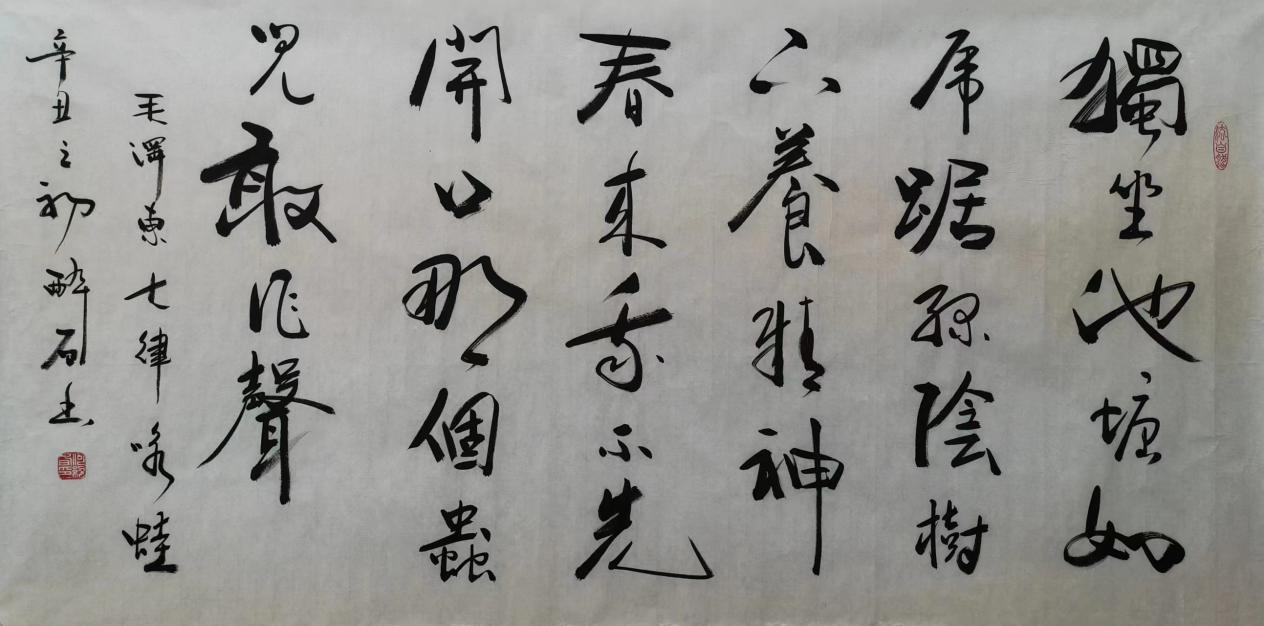 獨坐池塘如
虎踞綠陰樹
下養精神
春来我不先
開口那個蟲
兒敢作聲
毛澤東七律咏蛙
辛丑之初醉石书